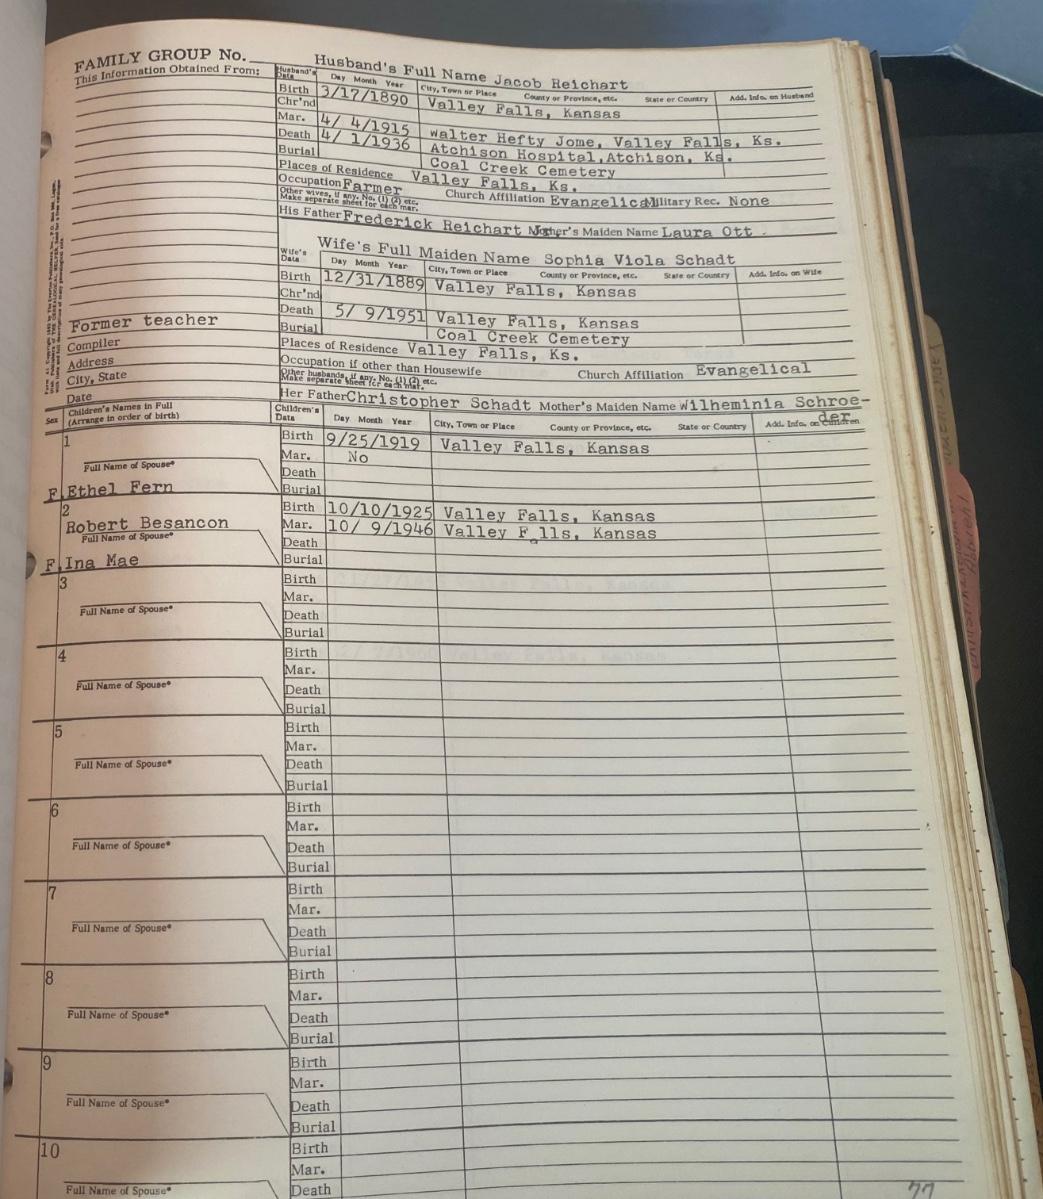 FAMILY GROUP No.
Husband's Full Name Jacob Reichart
This Information Obtained From:
Husband's Data Day Month Year City, Town or Place County or Province, etc. State or Country Add. Info. on Husband
Birth 3/17/1890 Valley Falls, Kansas
Chr'nd
Mar. 4/ 4/1915 Walter Hefty Jome, Valley Falls, Ks.
Death 4/ 1/1936 Atchison Hospital, Atchison, Ks.
Burial Coal Creek Cemetery
Places of Residence Valley Falls, Ks.
Occupation Farmer Church Affiliation Evangelical Military Rec. None
Other wives, if any. No. (1) (2) etc.
Make separate sheet for each mar.
His Father Frederick Reichart Mother's Maiden Name Laura Ott
Wife's Full Maiden Name Sophia Viola Schadt
Wife's Data Day Month Year City, Town or Place County or Province, etc. State or Country Add. Info. on Wife
Birth 12/31/1889 Valley Falls, Kansas
Chr'nd
Death 5/ 9/1951 Valley Falls, Kansas
Burial Coal Creek Cemetery
Former teacher
Compiler
Address
City, State
Date
Places of Residence Valley Falls, Ks.
Occupation if other than Housewife Church Affiliation Evangelical
Other husbands, if any. No. (1) (2) etc.
Make separate sheet for each mar.
Her Father Christopher Schadt Mother's Maiden Name Wilheminia Schroe-
der
Sex Children's Names in Full
(Arrange in order of birth)
Children's Data Day Month Year City, Town or Place County or Province, etc. State or Country Add. Info. on Children
1
Birth 9/25/1919 Valley Falls, Kansas
Mar. No
Full Name of Spouse*
Death
F Ethel Fern Burial
2
Birth 10/10/1925 Valley Falls, Kansas
Robert Besancon Mar. 10/ 9/1946 Valley F lls, Kansas
a
Full Name of Spouse*
Death
F Ina Mae Burial
3
Birth
Mar.
Full Name of Spouse*
Death
Burial
4
Birth
Mar.
Full Name of Spouse*
Death
Burial
5
Birth
Mar.
Full Name of Spouse*
Death
Burial
6
Birth
Mar.
Full Name of Spouse*
Death
Burial
7
Birth
Mar.
Full Name of Spouse*
Death
Burial
8
Birth
Mar.
Full Name of Spouse*
Death
Burial
9
Birth
Mar.
Full Name of Spouse*
Death
Burial
10
Birth
Mar.
Full Name of Spouse*
Death
77